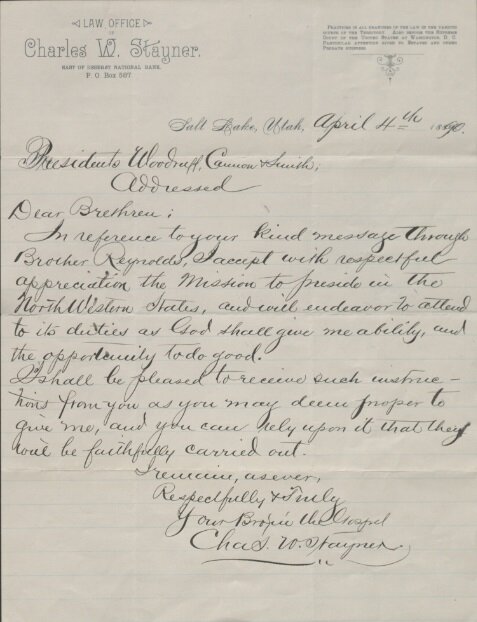 LAW OFFICE
OF
Charles W. Stayner.
EAST OF DESERET NATIONAL BANK.
P. O. Box 587
PRACTICES IN ALL BRANCHES OF THE LAW IN THE VARIOUS
COURTS OF THE TERRITORY. ALSO BEFORE THE SUPREME
COURT OF THE UNITED STATES AT WASHINGTON, D. C.
PARTICULAR ATTENTION GIVEN TO ESTATES AND OTHER
PROBATE BUSINESS.
Salt Lake, Utah, April 4th 1890.
Presidents Woodruff, Cannon & Smith;
Addressed
Dear Brethren;
In reference to your kind message through
Brother Reynolds, I accept with respectful
appreciation the Mission to preside in the
North Western States, and will endeavor to attend
to its duties as God shall give me ability, and
the opportunity to do good.
I shall be pleased to receive such instruc-
tions from you as you may deem proper to
give me, and you can rely upon it that they
will be faithfully carried out.
I remain, as ever,
Respectfully & Truly
Your Bro. in the Gospel
Chas. W. Stayner